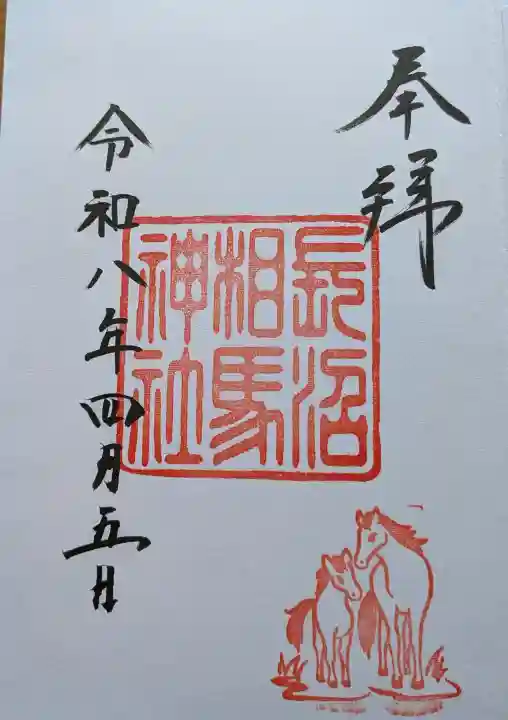 奉拜
長沼
相馬
神社
令和八年四月五日